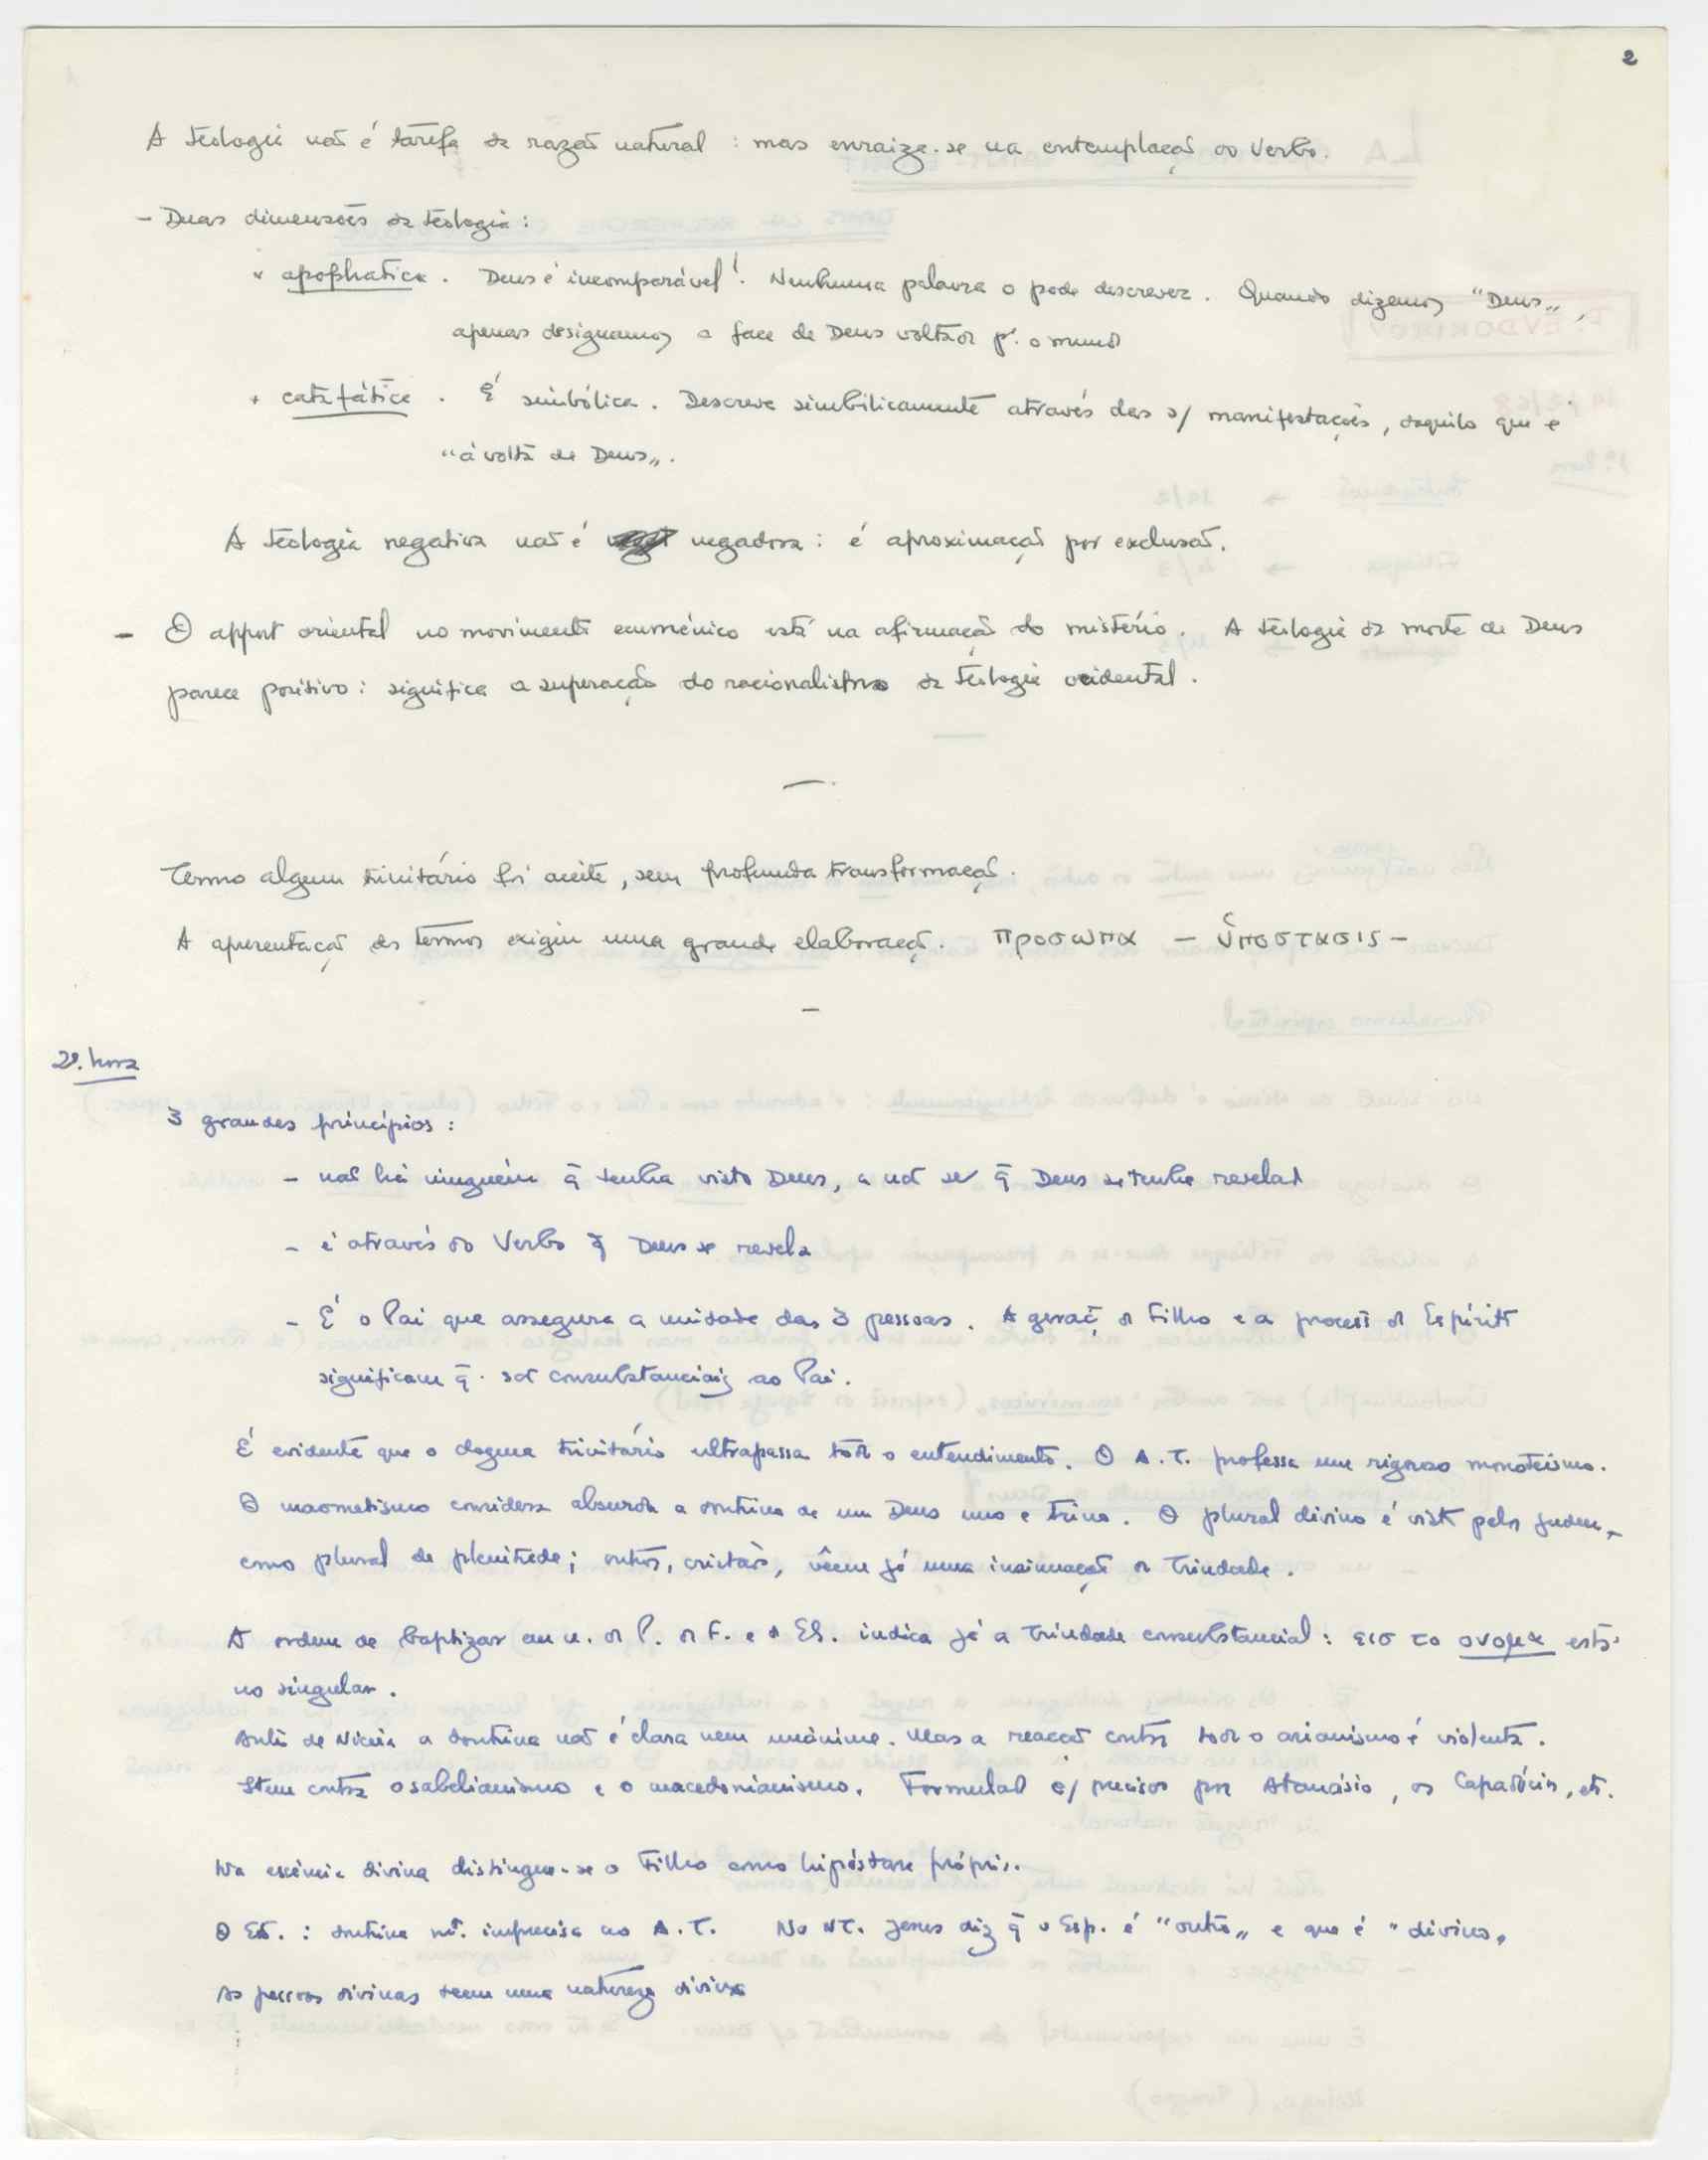 2
A teologia não é tarefa da razão natural : mas enraiza-se na contemplação do Verbo.
- Duas dimensões da teologia :
* apophatica . Deus é incomparável ! Nenhuma palavra o pode descrever . Quando dizemos "Deus",
apenas designamos a face de Deus voltada p.ª o mundo
* catafática . É simbólica . Descreve simbilicamente através das s/ manifestações, daquilo que é
"à volta de Deus".
A teologia negativa não é negadora : é aproximação por exclusão.
- O apport oriental no movimento ecuménico está na afirmação do mistério. A teologia da morte de Deus
parece positivo : significa a superação do racionalismo da teologia ocidental .
Termo algum trinitário foi aceite, sem profunda transformação.
A apresentação dos termos exigiu uma grande elaboração. προσωπα - ὑποστασις -
2ª. hora
3 grandes princípios :
- não há ninguém q̃ tenha visto Deus, a não ser q̃ Deus se tenha revelado
- é através do Verbo q̃ Deus se revela
- É o Pai que assegura a unidade das 3 pessoas . A geração do Filho e a processão do Espírito
significam q̃ . são consubstanciais ao Pai .
É evidente que o dogma trinitário ultrapassa todo o entendimento. O A.T. professa um rigoroso monoteísmo.
O maometismo considera absurda a doutrina de um Deus uno e trino . O plural divino é visto pelos judeus,
como plural de plenitude ; outros, cristãos, vêem já uma insinuação da Trindade .
A ordem de baptizar em n. do P. do F. e do ES. indica já a Trindade consubstancial : εισ το ονομα está
no singular .
Antes de Niceia a doutrina não é clara nem unânime. Mas a reacção contra todo o arianismo é violenta .
Item contra o sabelianismo e o macedonianismo. Formulado c/ precisos por Atanásio, os Capadócios, etc.
Na essência divina distingue-se o Filho como hipóstase própria.
O ES. : doutrina mt. imprecisa no A.T. No NT. Jesus diz q̃ o Esp. é "outro" e que é "divino"
As pessoas divinas teem uma natureza divina